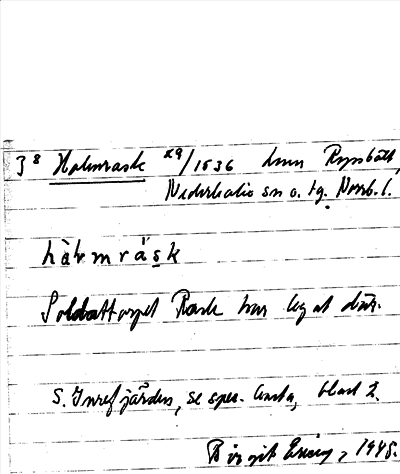 3⁸ Holmrask ²⁹/1536 hmn Rysbält,
Nederkalix sn o. tg. Norrb. l.
hàlmrásk
Soldattorpet Rask har legat där.
S. Inrefjärden, se spec. karta, blad 2.
Birgit Ericy, 1945.